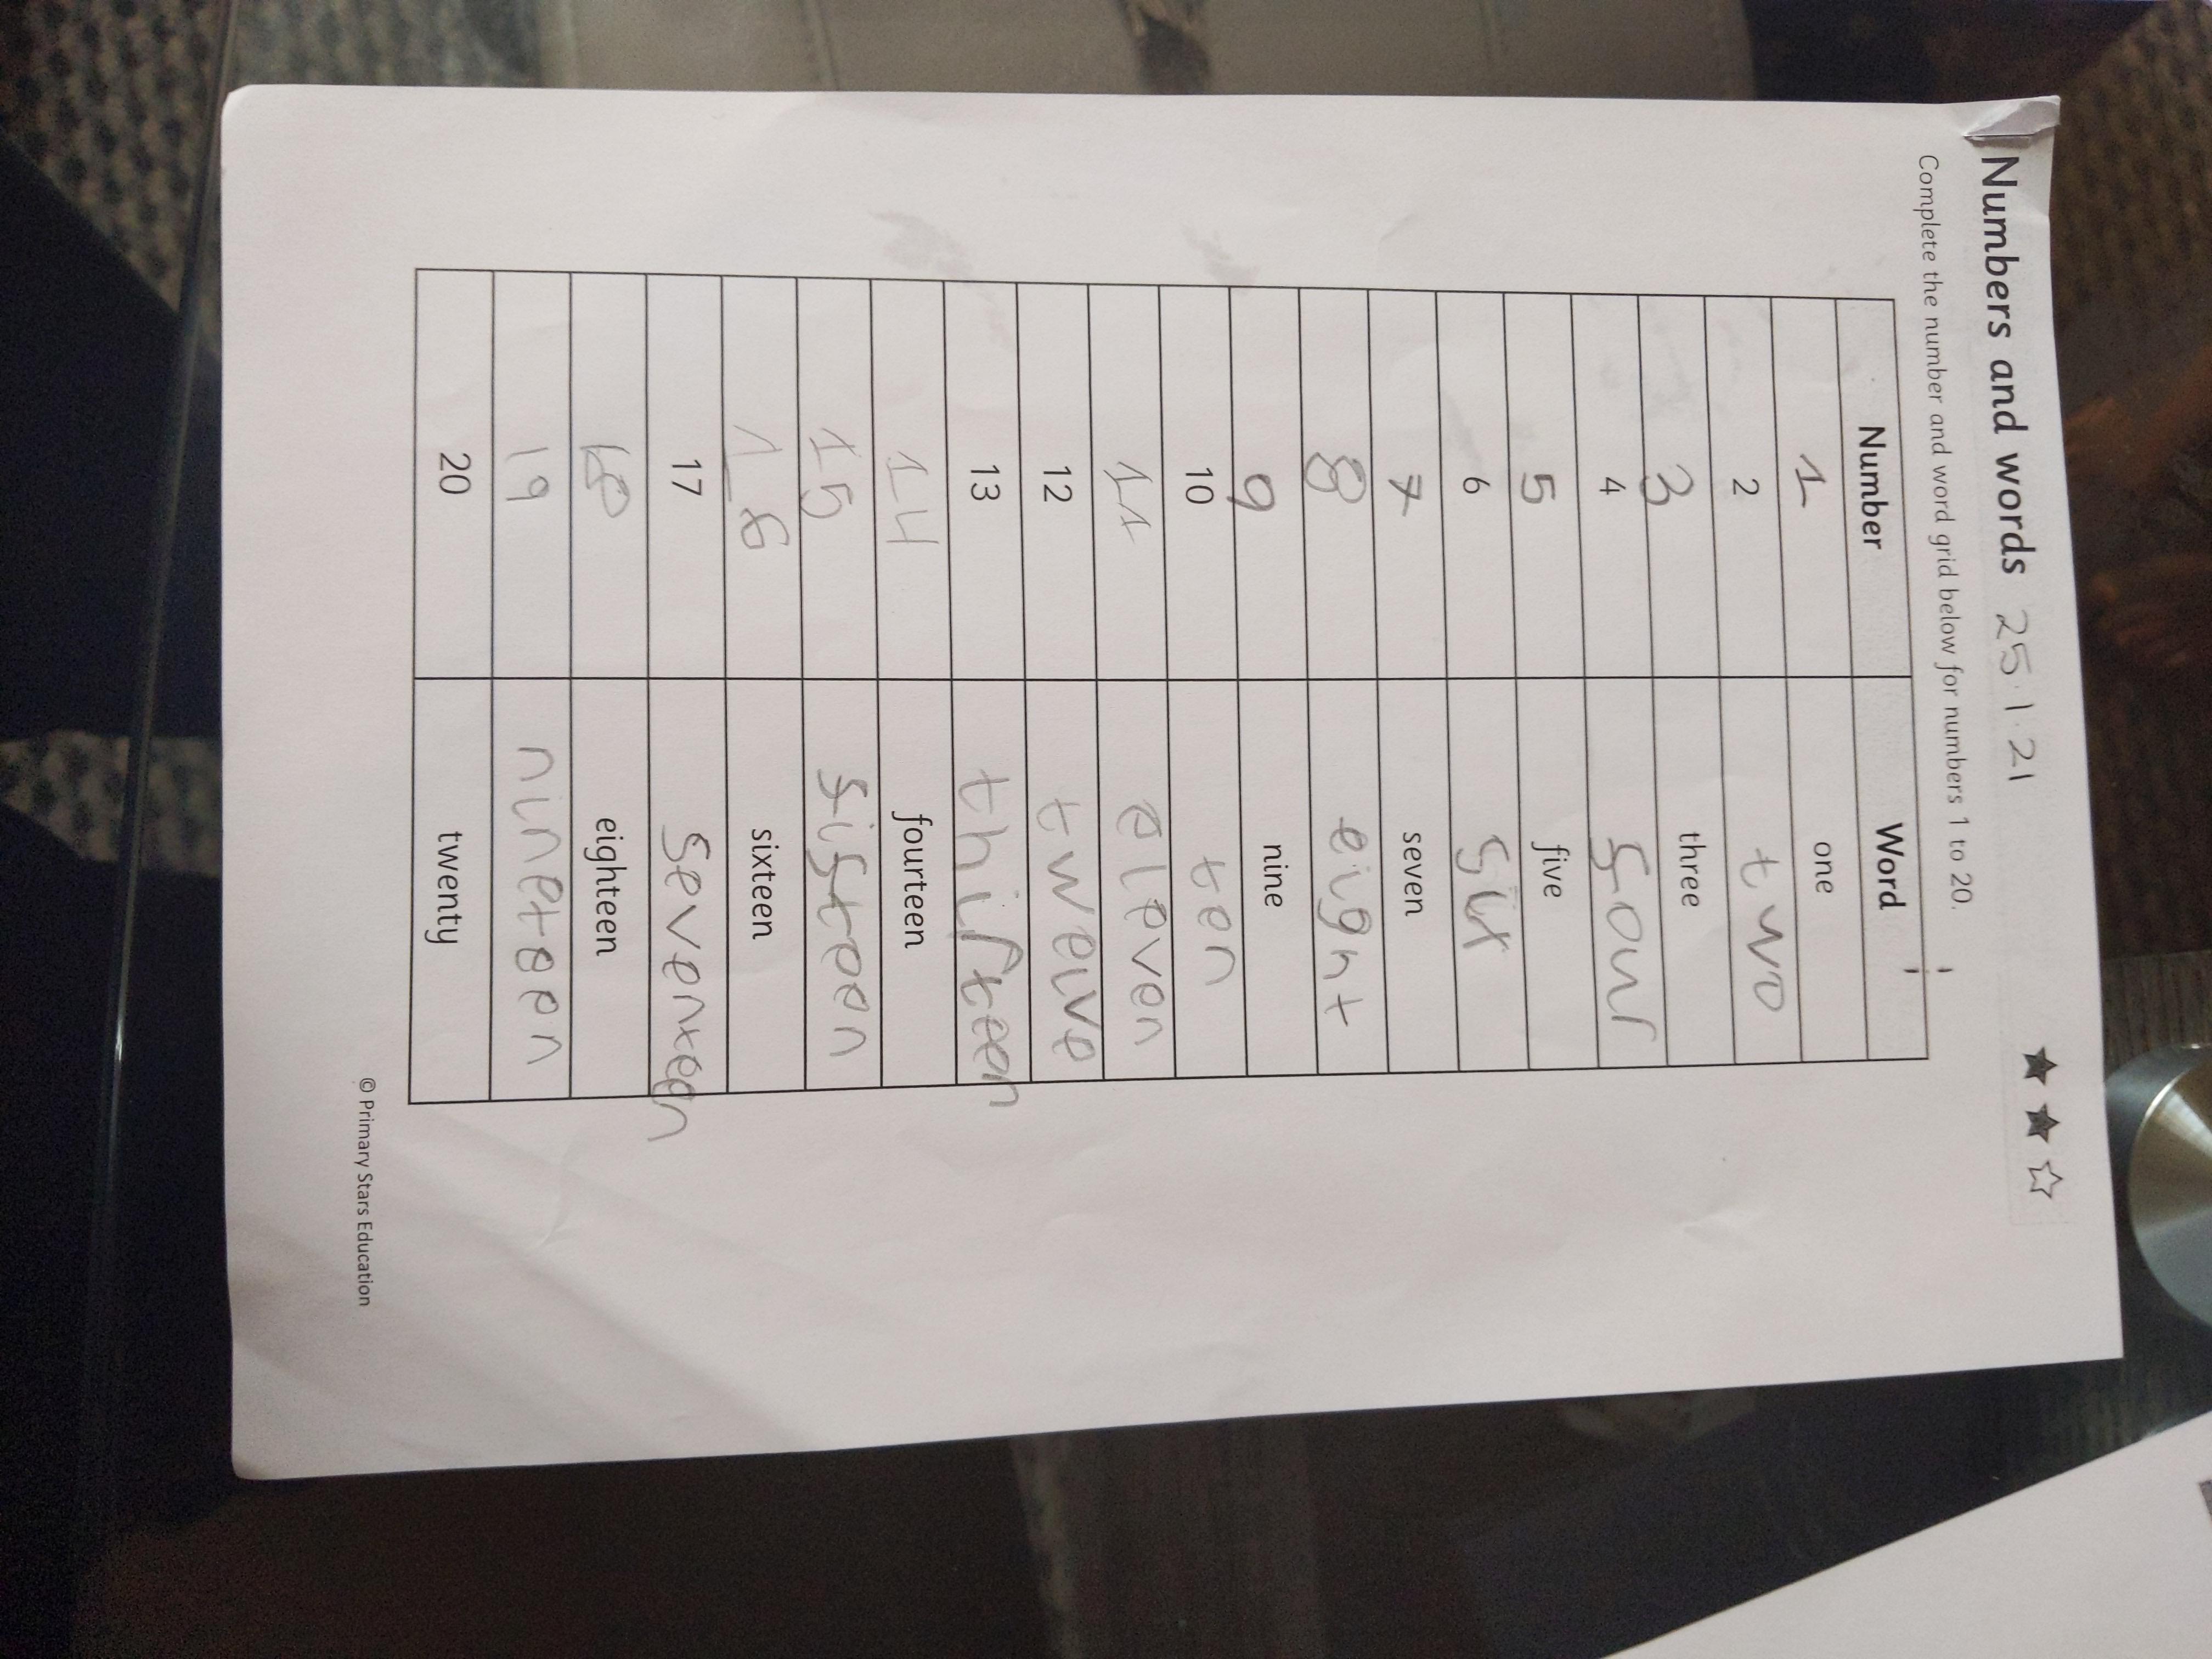 Numbers and words 25.1.21
Complete the number and word grid below for numbers 1 to 20.
Number Word
1 one
2 two
3 three
4 four
5 five
6 six
7 seven
8 eight
9 nine
10 ten
11 eleven
12 twelve
13 thirfteen
14 fourteen
15 fifteen
16 sixteen
17 seventeen
18 eighteen
19 nineteen
20 twenty
© Primary Stars Education